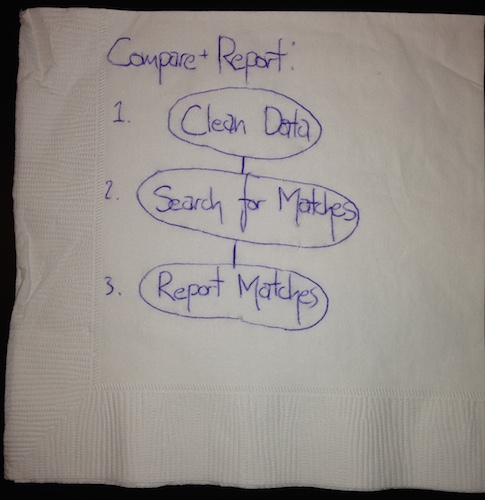 Compare + Report:
1. Clean Data
2. Search for Matches
3. Report Matches